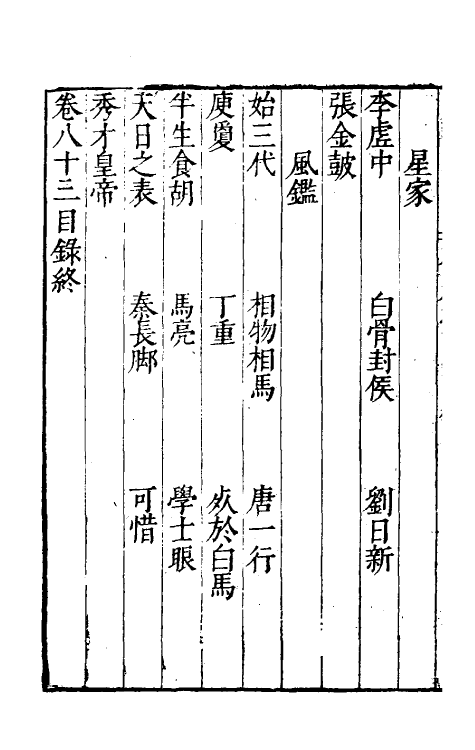 星家
李虛中 白骨封侯 劉日新
張金鼓
風鑑
始三代 相物相馬 唐一行
庾敻 丁重 必於白馬
半生食胡 馬亮 學士眼
天日之表 秦長脚 可惜
秀才皇帝
卷八十三目錄終